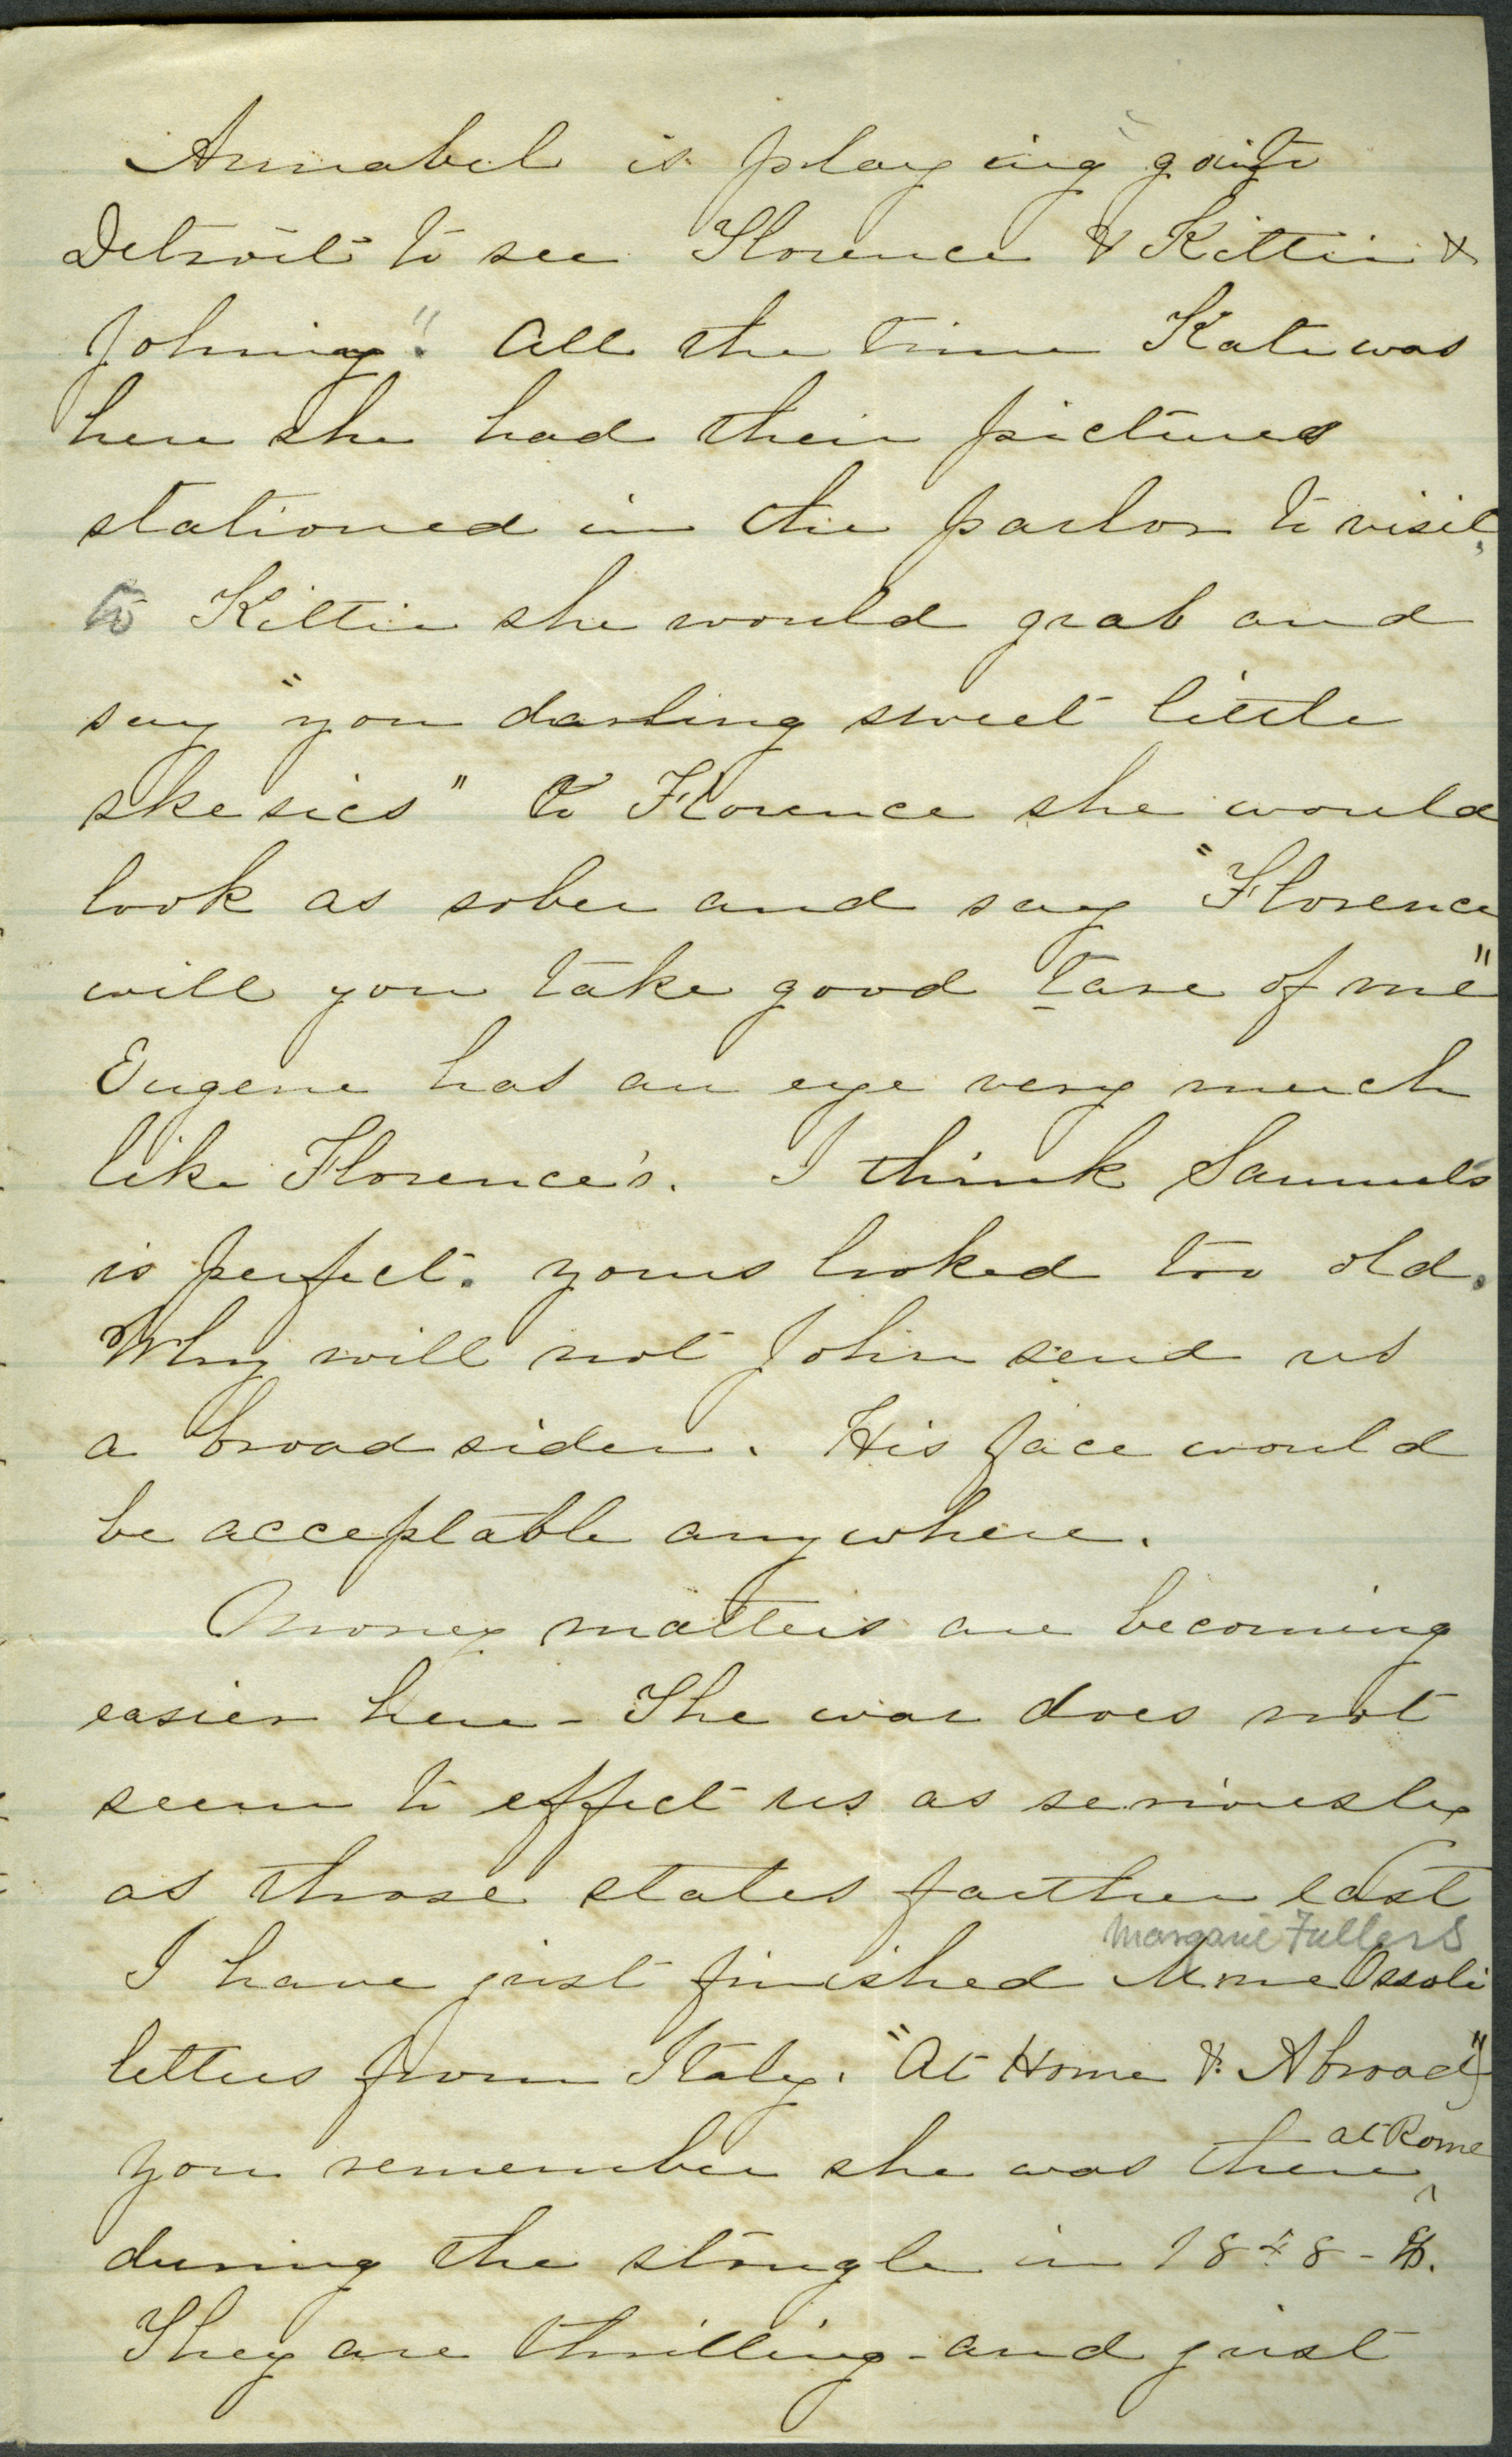 Annabel is playing "goin to
Detroit to see Florence & Kittie &
Johniny". All the time Kate was
here she had their pictures
stationed in the parlor to visit,
to Kittie she would grab and
say "you darling sweet little
skesics" to Florence she would
look as sober and say "Florence
will you take good tare of me"
Eugene has an eye very much
like Florence's. I think Samuels
is perfect. yours looked too old.
Why will not John send us
a broad sider. His face would
be acceptable anywhere.
Money matters are becoming
easier here - The war does not
seem to effect us as seriously
as those states farther east
Margaret Fullers
I have just finished Mme Ossoli
letters from Italy. "At Home & Abroad")
at Rome
you remember she was there ^
during the strugle in 1848-9.
They are thrilling - and just